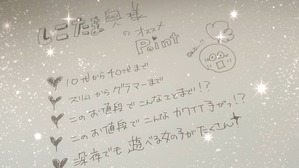 しこたま奥様
のオススメ
Point
10代から40代まで
スリムからグラマーまで
このお値段でこんなことまで!?
このお値段でこんなカワイイ子がっ!?
深夜でも遊べる女の子がたくさん